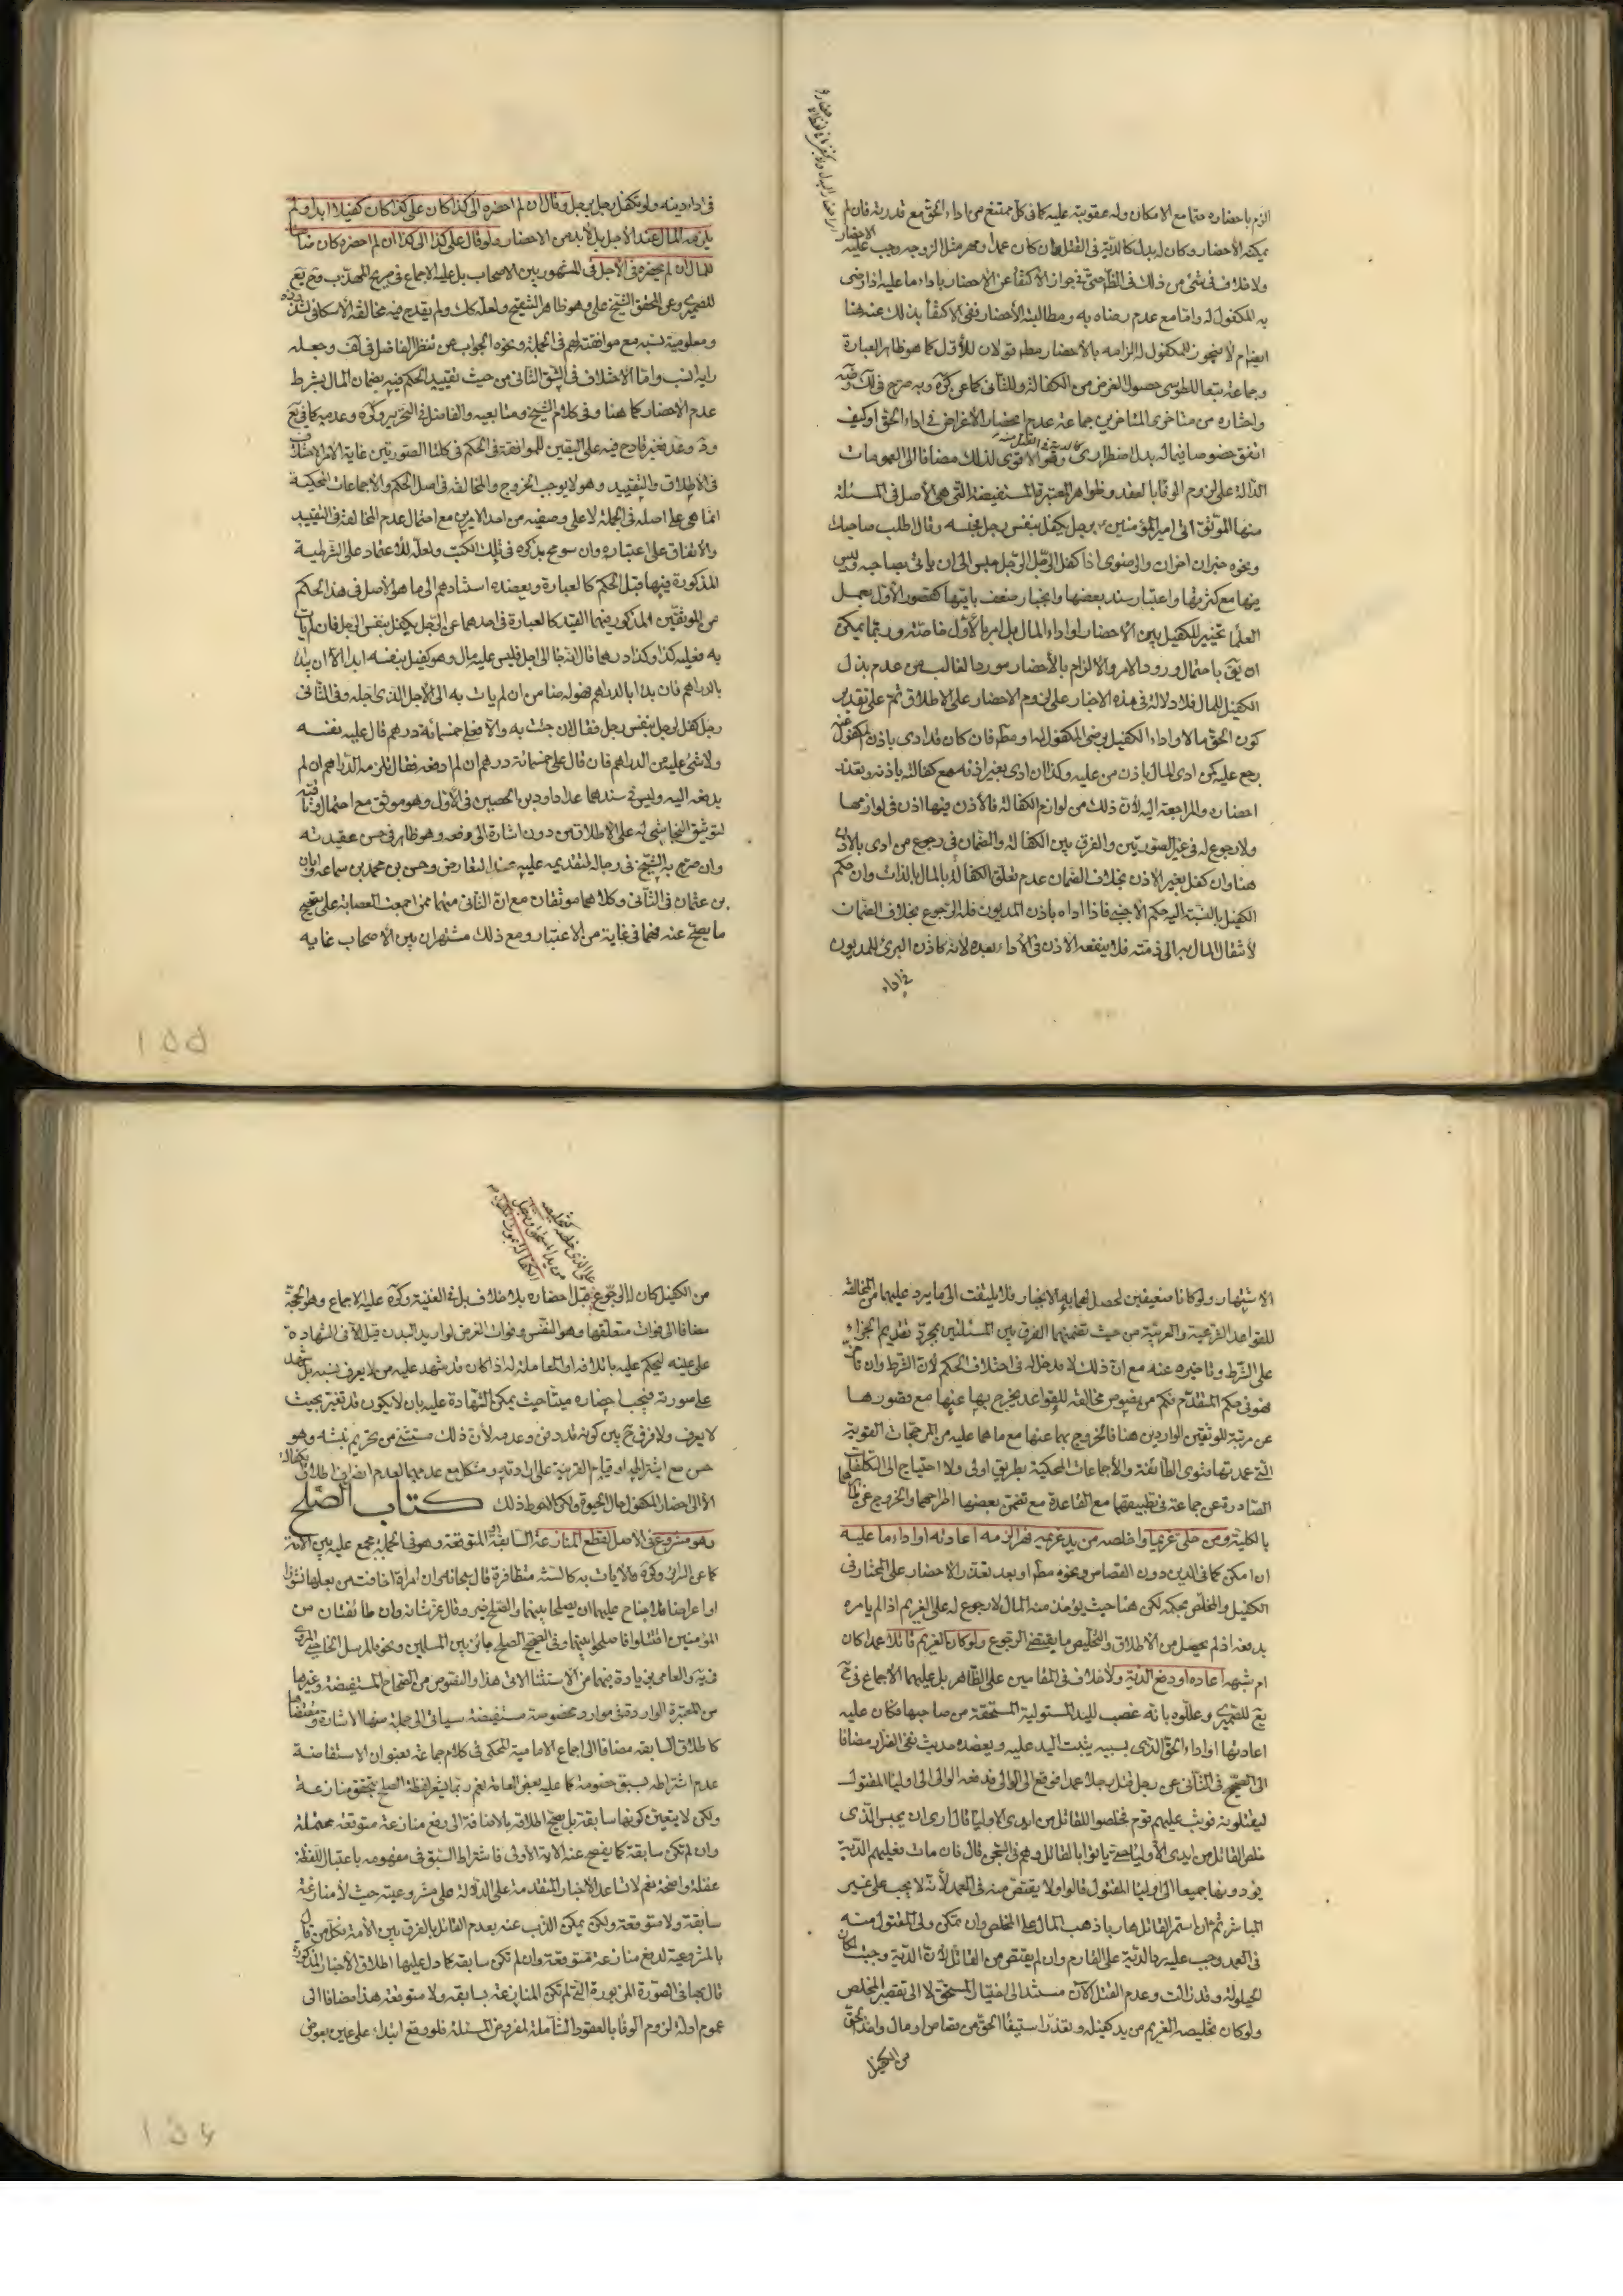 الزم باحضاره حتما مع الامكان وله عقوبته عليه كما في كل ممتنع من اداء الحق مع قدرته فان لم
يمكنه الاحضار وكان له بدل كالدية في القتل وان كان عمدا ومهر مثل الزوجه وجب عليه
ولا خلاف في شئ من ذلك في الظ حتى في جواز الاكتفاء عن الاحضار باداء ما عليه اذا رضى
به المكفول له واما مع عدم رضاه به ومطالبته الأحضار ففي الاكتفاء بذلك عنه هنا
ايضا ام لا فيجوز للمكفول له الزامه بالأحضار مط قولان للأول كما هو ظاهر العبارة
وجماعة تبعا للطوسى حصول الغرض من الكفالة وللثانى كما عن كره وبه صرح في لك
واختاره من متأخرى المتأخرين جماعة عدم انحصار الأغراض في اداء الحق او كيف
اتفق خصوصا فيما له بدل اضطرارى وهو الاقوى لذلك مضافا الى العمومات
الدالة على لزوم الوفا بالعقد وظواهر المعتبرة المستفيضة التى هى الأصل في المسئلة
منها الموثق اتى امير المؤمنين ع برجل يكفل بنفس رجل فحبسه وقال اطلب صاحبك
ونحوه خبران اخران والرضوى اذا كفل الرجل الرجل حبس الى ان ياتى بصاحبه وليس
فيها مع كثرتها واعتبار سند بعضها وانجبار ضعف باقيها كقصور الأول بعمل
العلما تخيير للكفيل بين الاحضار او اداء المال بل امر بالأول خاصته وربما يمكن
ان يق باحتمال ورود الامر والالزام بالأحضار مورد الغالب من عدم بذل
الكفيل للمال فلا دلالة في هذه الاخبار على لزوم الاحضار على الاطلاق ثم على تقدير
كون الحق مالا واداء الكفيل برضى المكفول له او مط فان كان قد ادى باذن المكفول عنه
رجع عليه كمن ادى المال باذن من عليه وكذا ان ادى بغير اذنه مع كفالته باذنه وتعذر
احضاره والمراجعة اليه لأن ذلك من لوازم الكفالة فالأذن فيها اذن في لوازمها
ولا رجوع له في غير الصورتين والفرق بين الكفالة والضمان في رجوع من ادى بالاذن
هنا وان كفل بغير الاذن بخلاف الضمان عدم تعلق الكفالة بالمال بالذات وان حكم
الكفيل بالنسبة اليه حكم الاجنبي فاذا اداه باذن المديون فله الرجوع بخلاف الضمان
لانتقال المال به الى ذمته فلا ينفعه الاذن في الأداء بعده لانه كاذن البرئ للمديون
في اداء
في اداء دينه ولو تكفل رجل برجل وقال ان لم احضره الى كذا كان على كذا كان كفيلا ابدا ولم
يلزمه المال عند الأجل بل لا بد من الاحضار ولو قال على كذا الى كذا ان لم احضره كان ضامنا
للمال ان لم يحضره في الأجل في المشهور بين الاصحاب بل عليه الاجماع في صريح المهذب وشرح يع
للصيمرى وعن المحقق الشيخ على وهو ظاهر الشيخ ولعله كك ولم يقدح فيه مخالفة الاسكافى لشذوذه
ومعلومية نسبه مع موافقته لهم في الجملة ونحوه الجواب عن تنظر الفاضل في لف وجعله
رايه انسب واما الاختلاف في الشق الثانى من حيث تقييد الحكم فيه بضمان المال بشرط
عدم الاحضار كما هنا وفي كلام الشيخ ومتابعيه والفاضل في التحرير وكره وعدمه كما في يع
وير وعد فغير قادح فيه على اليقين للموافقة في الحكم في كلتا الصورتين غاية الامر اختلاف
في الأطلاق والتقييد وهو لا يوجب الخروج والمخالفة في اصل الحكم والاجماعات المحكية
انما هى على اصله في الجملة لا على وصفيه من احد الامرين مع احتمال عدم المخالفة في التقييد
والاتفاق على اعتباره وان سومح بذكره في تلك الكتب ولعله للاعتماد على الشرطية
المذكورة فيها قبل الحكم كالعبارة ويعضده استنادهم الى ما هو الأصل في هذا الحكم
من الموثقين المذكور فيهما القيد كالعبارة في احدهما عن الرجل يكفل بنفس الرجل فان لم يات
به فعليه كذا وكذا درهما قال ان جا الى اجل فليس عليه مال وهو كفيل بنفسه ابدا الا ان يبدا
بالدراهم فان بدا بالدراهم فهو له ضامن ان لم يات به الى الأجل الذى اجله وفي الثانى
رجل كفل لرجل بنفس رجل فقال ان جئت به والا فعلى خمسمائة درهم قال عليه نفسه
ولا شئ عليه من الدراهم فان قال على خمسمائة درهم ان لم ادفعه فقال تلزمه الدراهم ان لم
يدفعه اليه وليس في سندهما عدا داود بن الحصين في الأول وهو موثق مع احتمال وثاقته
لتوثيق النجاشى له على الاطلاق من دون اشارة الى وقفه وهو ظاهر في حسن عقيدته
وان صرح به الشيخ في رجاله لتقديمه عليه عند التعارض وحسن بن محمد بن سماعه وابان
بن عثمان في الثانى وكلاهما موثقان مع ان الثانى منهما ممن اجمعت العصابة على تصحيح
ما يصح عنه فهما في غاية من الاعتبار ومع ذلك مشتهران بين الأصحاب غايه
١٥٥
الاشتهار ولو كانا ضعيفين لحصل لهما به الانجبار فلا يلتفت الى ما يرد عليهما من المخالفة
للقواعد الشرعية والعربية من حيث تضمنهما الفرق بين المسئلتين بمجرد تقديم الجزاء
على الشرط وتاخيره عنه مع ان ذلك لا مدخل له في اختلاف الحكم لأن الشرط وان تأخر
فهو في حكم المتقدم فكم من نصوص مخالفة للقواعد يخرج بها عنها مع قصورها
عن مرتبة الموثقين الواردين هنا فالخروج بهما عنها مع ما هما عليه من المرجحات القوية
التى عمدتها فتوى الطائفة والأجماعات المحكية بطريق اولى ولا احتياج الى التكلفات
الصادرة عن جماعة في تطبيقهما مع القاعدة مع تضمن بعضها اطراحهما والخروج عن ظاهرهما
بالكلية ومن خلى غريما او خلصه من يد غريمه قهرا لزمه اعادته او اداء ما عليه
ان امكن كما في الدين دون القصاص ونحوه مط او بعد تعذر الاحضار على المختار في
الكفيل والمخلص بحكمه لكن هنا حيث يؤخذ منه المال لا رجوع له على الغريم اذا لم يامره
بدفعه اذ لم يحصل من الاطلاق والتخليص ما يقتضى الرجوع ولو كان الغريم قاتلا عمدا كان
ام شبهه اعاده او دفع الدية ولا خلاف في المقامين على الظاهر بل عليهما الاجماع في شرح
يع للصيمرى وعللوه بانه غصب لليد المستولية المستحقة من صاحبها فكان عليه
اعادتها او اداء الحق الذى بسببه يثبت اليد عليه ويعضده حديث نفى الضرار مضافا
الى الصحيح في الثانى عن رجل قتل رجلا عمدا فرفع الى الوالى فدفعه الوالى الى اوليا المقتول
ليقتلوه فوثب عليهم قوم فخلصوا القاتل من ايدى الاوليا قال ارى ان يحبس الذى
خلص القاتل من ايدى الأوليا حتى ياتوا بالقاتل وهم في السجن قال فان مات فعليهم الدية
يؤدونها جميعا الى اوليا المقتول قالوا ولا يقتص منه في العمد لأنه لا يجب على غير
المباشر ثم ان استمر القاتل هاربا ذهب المال على المخلص وان تمكن ولى المقتول منه
في العمد وجب عليه رد الدية على الغارم وان لم يقتص من القاتل لأن الدية وجبت لمكان
الحيلولة وقد زالت وعدم القتل الآن مستند الى اختيار المستحق لا الى تقصير المخلص
ولو كان تخليصه الغريم من يد كفيله وتعذر استيفا الحق من قصاص او مال واخذ الحق
من الكفيل
من الكفيل كان له الرجوع قبل احضاره بلا خلاف بل في الغنية وكره عليه الاجماع وهو الحجة
مضافا الى فوات متعلقها وهو النفس وفوات الغرض لو اريد البدن قيل الا في الشهادة
على عينه ليحكم عليه باتلافه او المعاملة له اذا كان قد شهد عليه من لا يعرف نسبه بل شهد
على صورته فيجب احضاره ميتا حيث يمكن الشهادة عليه بان لا يكون قد تغير بحيث
لا يعرف ولا فرق ح بين كونه قد دفن وعدمه لأن ذلك مستثنى من تحريم نبشه وهو
حسن مع اشتراطه او قيام القرينة على ارادته ومشكل مع عدمهما لعدم انصراف اطلاق الكفالة
الا الى احضار المكفول حال الحيوة ولكن احوط ذلك كتاب الصلح
وهو مشروع في الاصل لقطع المنازعة السابقة او المتوقعة وهو في الجملة مجمع عليه بين الامة
كما عن السرائر وكره والايات به كالسنة متظافرة قال سبحانه وان امراة خافت من بعلها نشوزا
او اعراضا فلا جناح عليهما ان يصلحا بينهما والصلح خير وقال عز شانه وان طائفتان من
المؤمنين اقتتلوا فاصلحوا بينهما وفي الصحيح الصلح جائز بين المسلمين ونحوه المرسل الخاصى المروى
في يه والعامى بزيادة فيهما من الاستثنا الاتى هذا والنصوص من الصحاح المستفيضة وغيرها
من المعتبرة الواردة في موارد مخصوصة مستفيضة سياتى الى جملة منها الاشارة ومقتضاها
كاطلاق السابقه مضافا الى اجماع الامامية المحكى في كلام جماعة بعنوان الاستفاضة
عدم اشتراطه بسبق خصومة كما عليه بعض العامة نعم ربما يشعر لفظة الصلح بتحقق منازعة
ولكن لا يتعين كونها سابقة بل يصح اطلاقه بالاضافة الى رفع منازعة متوقعة محتملة
وان لم تكن سابقة كما يفصح عنه الاية الأولى فاشتراط السبق في مفهومه باعتبار اللفظة
غفلة واضحة نعم لا تساعد الاخبار المتقدمة على الدلالة على مشروعيته حيث لا منازعة
سابقة ولا متوقعة ولكن يمكن الذب عنه بعدم القائل بالفرق بين الأمة فكل من قال
بالمشروعية لدفع منازعة متوقعة وان لم تكن سابقة كما دل عليها اطلاق الأخبار المذكورة
قال بها في الصورة المزبورة التى لم تكن المنازعة سابقه ولا متوقعة هذا مضافا الى
عموم ادلة لزوم الوفا بالعقود الشاملة لمفروض المسئلة فلو وقع ابتداء على عين بعوض
١٥٦